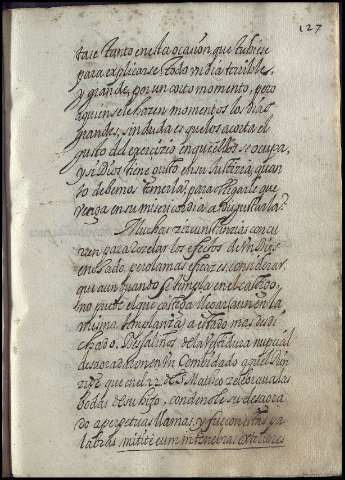 127
tase tanto en esta ocasión que tubiese
para explicarse todo un dia terrible,
y grande, por un corto momento, pero
a quien se le hazen momentos los dias
grandes, sin duda es que los acorta el
gusto del exercizio en que ellos se ocupa,
y si Dios tiene gusto en su Iustizia, quan
to debemos temerla, para obligarle que
venga en su misericordia a
Muchas zircunstanzias concu
rren para rezelar los efectos de un Dios
enojado, pero la mas eficaz es, considerar
que aun quando se templa en el castigo,
no puede el que castiga llegar aun en la
misma templanza, a estado mas desdi
chado. Desaliños de la vestidura nupcial
desazonaron en un Combidado aquel
que en el 22 de S. Mateo zelebraua las
bodas de su hijo, condenole su desaogo
a perpetuas llamas, y fueron estas pa
labras, mitite eum in tenebras exteriores